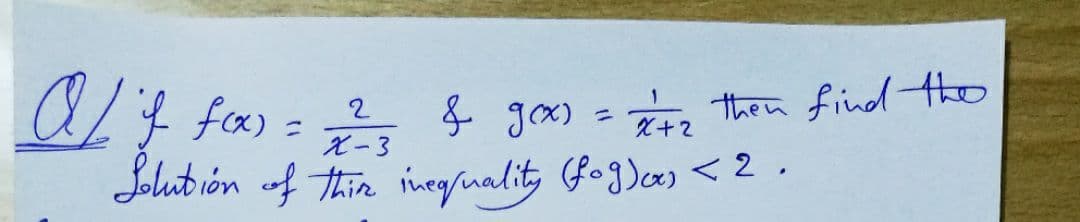 Q/ if f(x) = 2/(x-3) & g(x) = 1/(x+2) then find the
Solution of this inequality (fog)(x) < 2 .